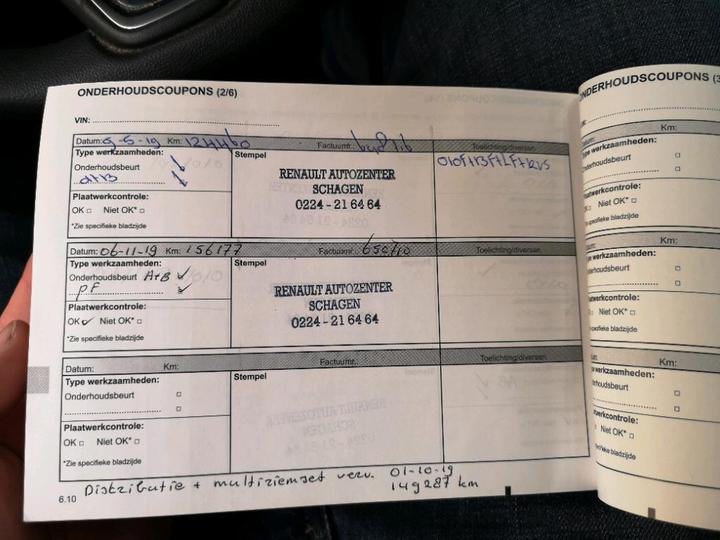 ONDERHOUDSCOUPONS (2/6)
VIN:
Datum: 9-5-19 Km: 124460 Factuurnr.: Toelichting/diversen
Type werkzaamheden:
Onderhoudsbeurt
Plaatwerkcontrole:
OK Niet OK*
*Zie specifieke bladzijde
Stempel
RENAULT AUTOZENTER
SCHAGEN
0224 - 21 64 64
Datum: 06-11-19 Km: 156177 Factuurnr.: Toelichting/diversen
Type werkzaamheden:
Onderhoudsbeurt A+B
PF
Plaatwerkcontrole:
OK Niet OK*
*Zie specifieke bladzijde
Stempel
RENAULT AUTOZENTER
SCHAGEN
0224 - 21 64 64
Datum: Km: Factuurnr.: Toelichting/diversen
Type werkzaamheden:
Onderhoudsbeurt
Plaatwerkcontrole:
OK Niet OK*
*Zie specifieke bladzijde
Stempel
6.10
Distributie + multiriemset verv. 01-10-19
149287 km
ONDERHOUDSCOUPONS (3
Km:
Onderhoudsbeurt
Niet OK*
Km:
werkzaamheden:
Onderhoudsbeurt
Niet OK*
Km:
werkzaamheden:
Niet OK*